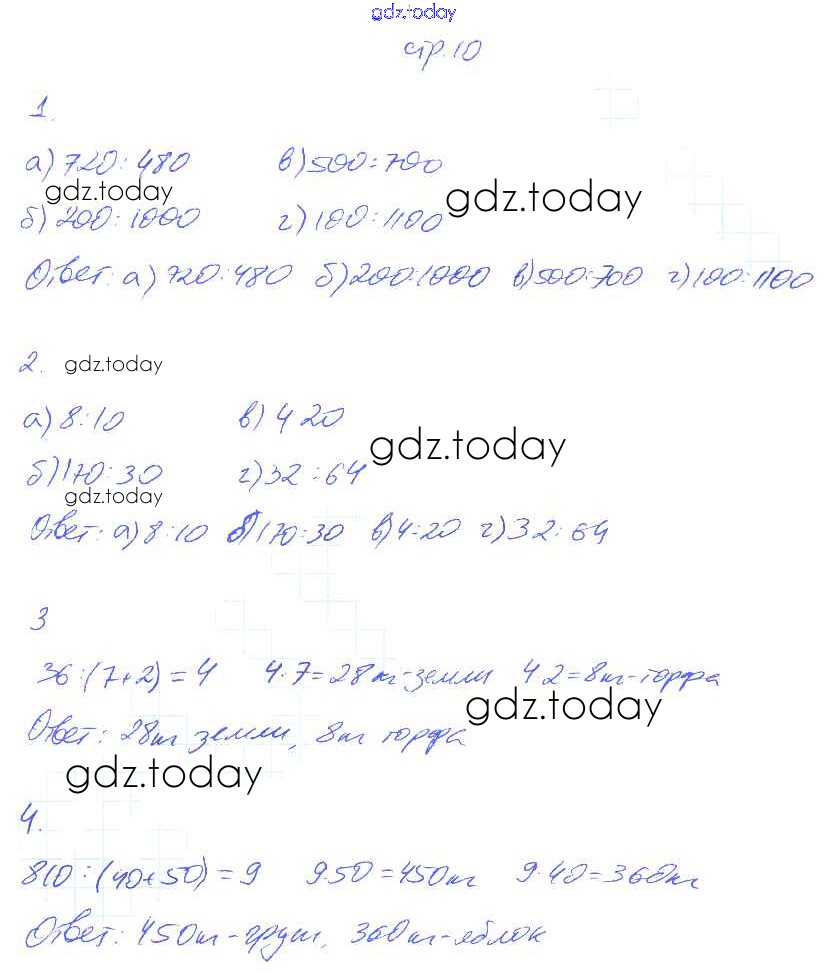 gdz.today
стр.10
1.
а) 720:480 в) 500:700
gdz.today gdz.today
б) 200:1000 г) 100:1100
Ответ: а) 720:480 б) 200:1000 в) 500:700 г) 100:1100
2. gdz.today
а) 8:10 в) 4 20
gdz.today
б) 170:30 г) 32:64
gdz.today
Ответ: а) 8:10 б) 170:30 в) 4:20 г) 32:64
3
36:(7+2)=4 4·7=28кг-земли 4 2=8кг-торфа
gdz.today
Ответ: 28кг земли, 8кг торфа
gdz.today
4.
810:(40+50)=9 9·50=450кг 9·40=360кг
Ответ: 450кг-груш, 360кг-яблок